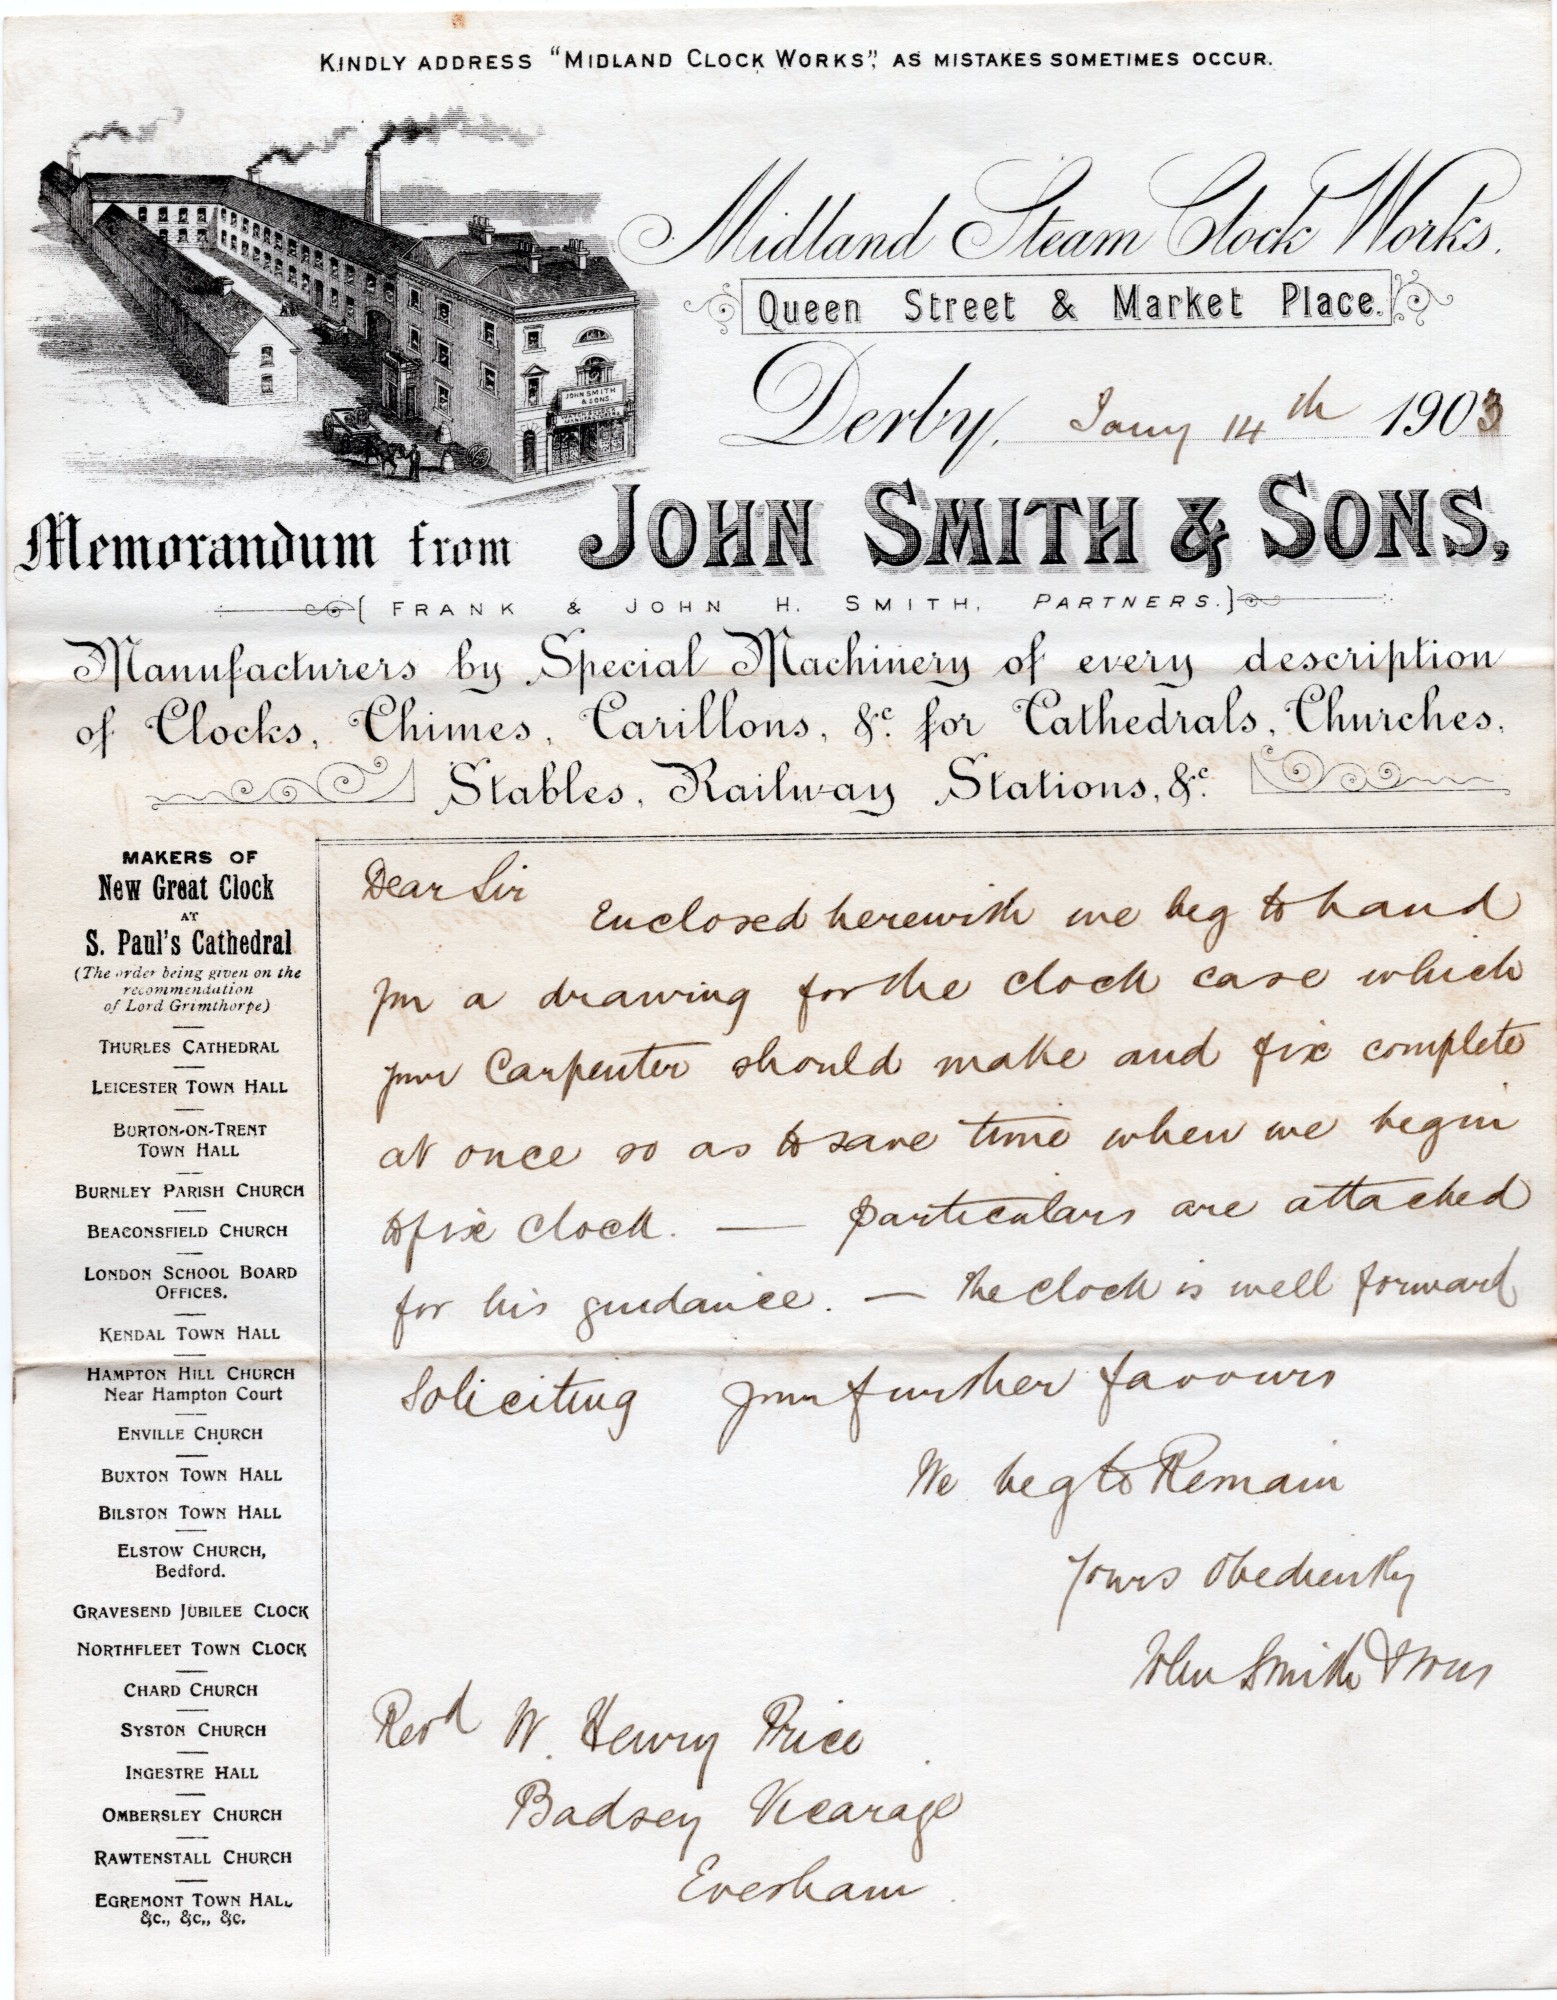 KINDLY ADDRESS "MIDLAND CLOCK WORKS", AS MISTAKES SOMETIMES OCCUR.
Midland Steam Clock Works.
Queen Street & Market Place.
Derby, Jany 14th 1903
JOHN SMITH
& SONS.
Memorandum from JOHN SMITH & SONS,
[FRANK & JOHN H. SMITH, PARTNERS.]
Manufacturers by Special Machinery of every description
of Clocks, Chimes, Carillons, &c. for Cathedrals, Churches,
Stables, Railway Stations, &c.
MAKERS OF
New Great Clock
AT
S. Paul's Cathedral
(The order being given on the
recommendation
of Lord Grimthorpe)
THURLES CATHEDRAL
LEICESTER TOWN HALL
BURTON-ON-TRENT
TOWN HALL
BURNLEY PARISH CHURCH
BEACONSFIELD CHURCH
LONDON SCHOOL BOARD
OFFICES.
KENDAL TOWN HALL
HAMPTON HILL CHURCH
Near Hampton Court
ENVILLE CHURCH
BUXTON TOWN HALL
BILSTON TOWN HALL
ELSTOW CHURCH,
Bedford.
GRAVESEND JUBILEE CLOCK
NORTHFLEET TOWN CLOCK
CHARD CHURCH
SYSTON CHURCH
INGESTRE HALL
OMBERSLEY CHURCH
RAWTENSTALL CHURCH
EGREMONT TOWN HALL
&c., &c., &c.
Dear Sir
Enclosed herewith we beg to hand
you a drawing for the clock case which
your Carpenter should make and fix complete
at once so as to save time when we begin
to fix clock. — Particulars are attached
for his guidance. — The clock is well forward
Soliciting your further favours
We beg to Remain
Yours Obediently
John Smith & Sons
Revd W. Henry Price
Badsey Vicarage
Evesham.